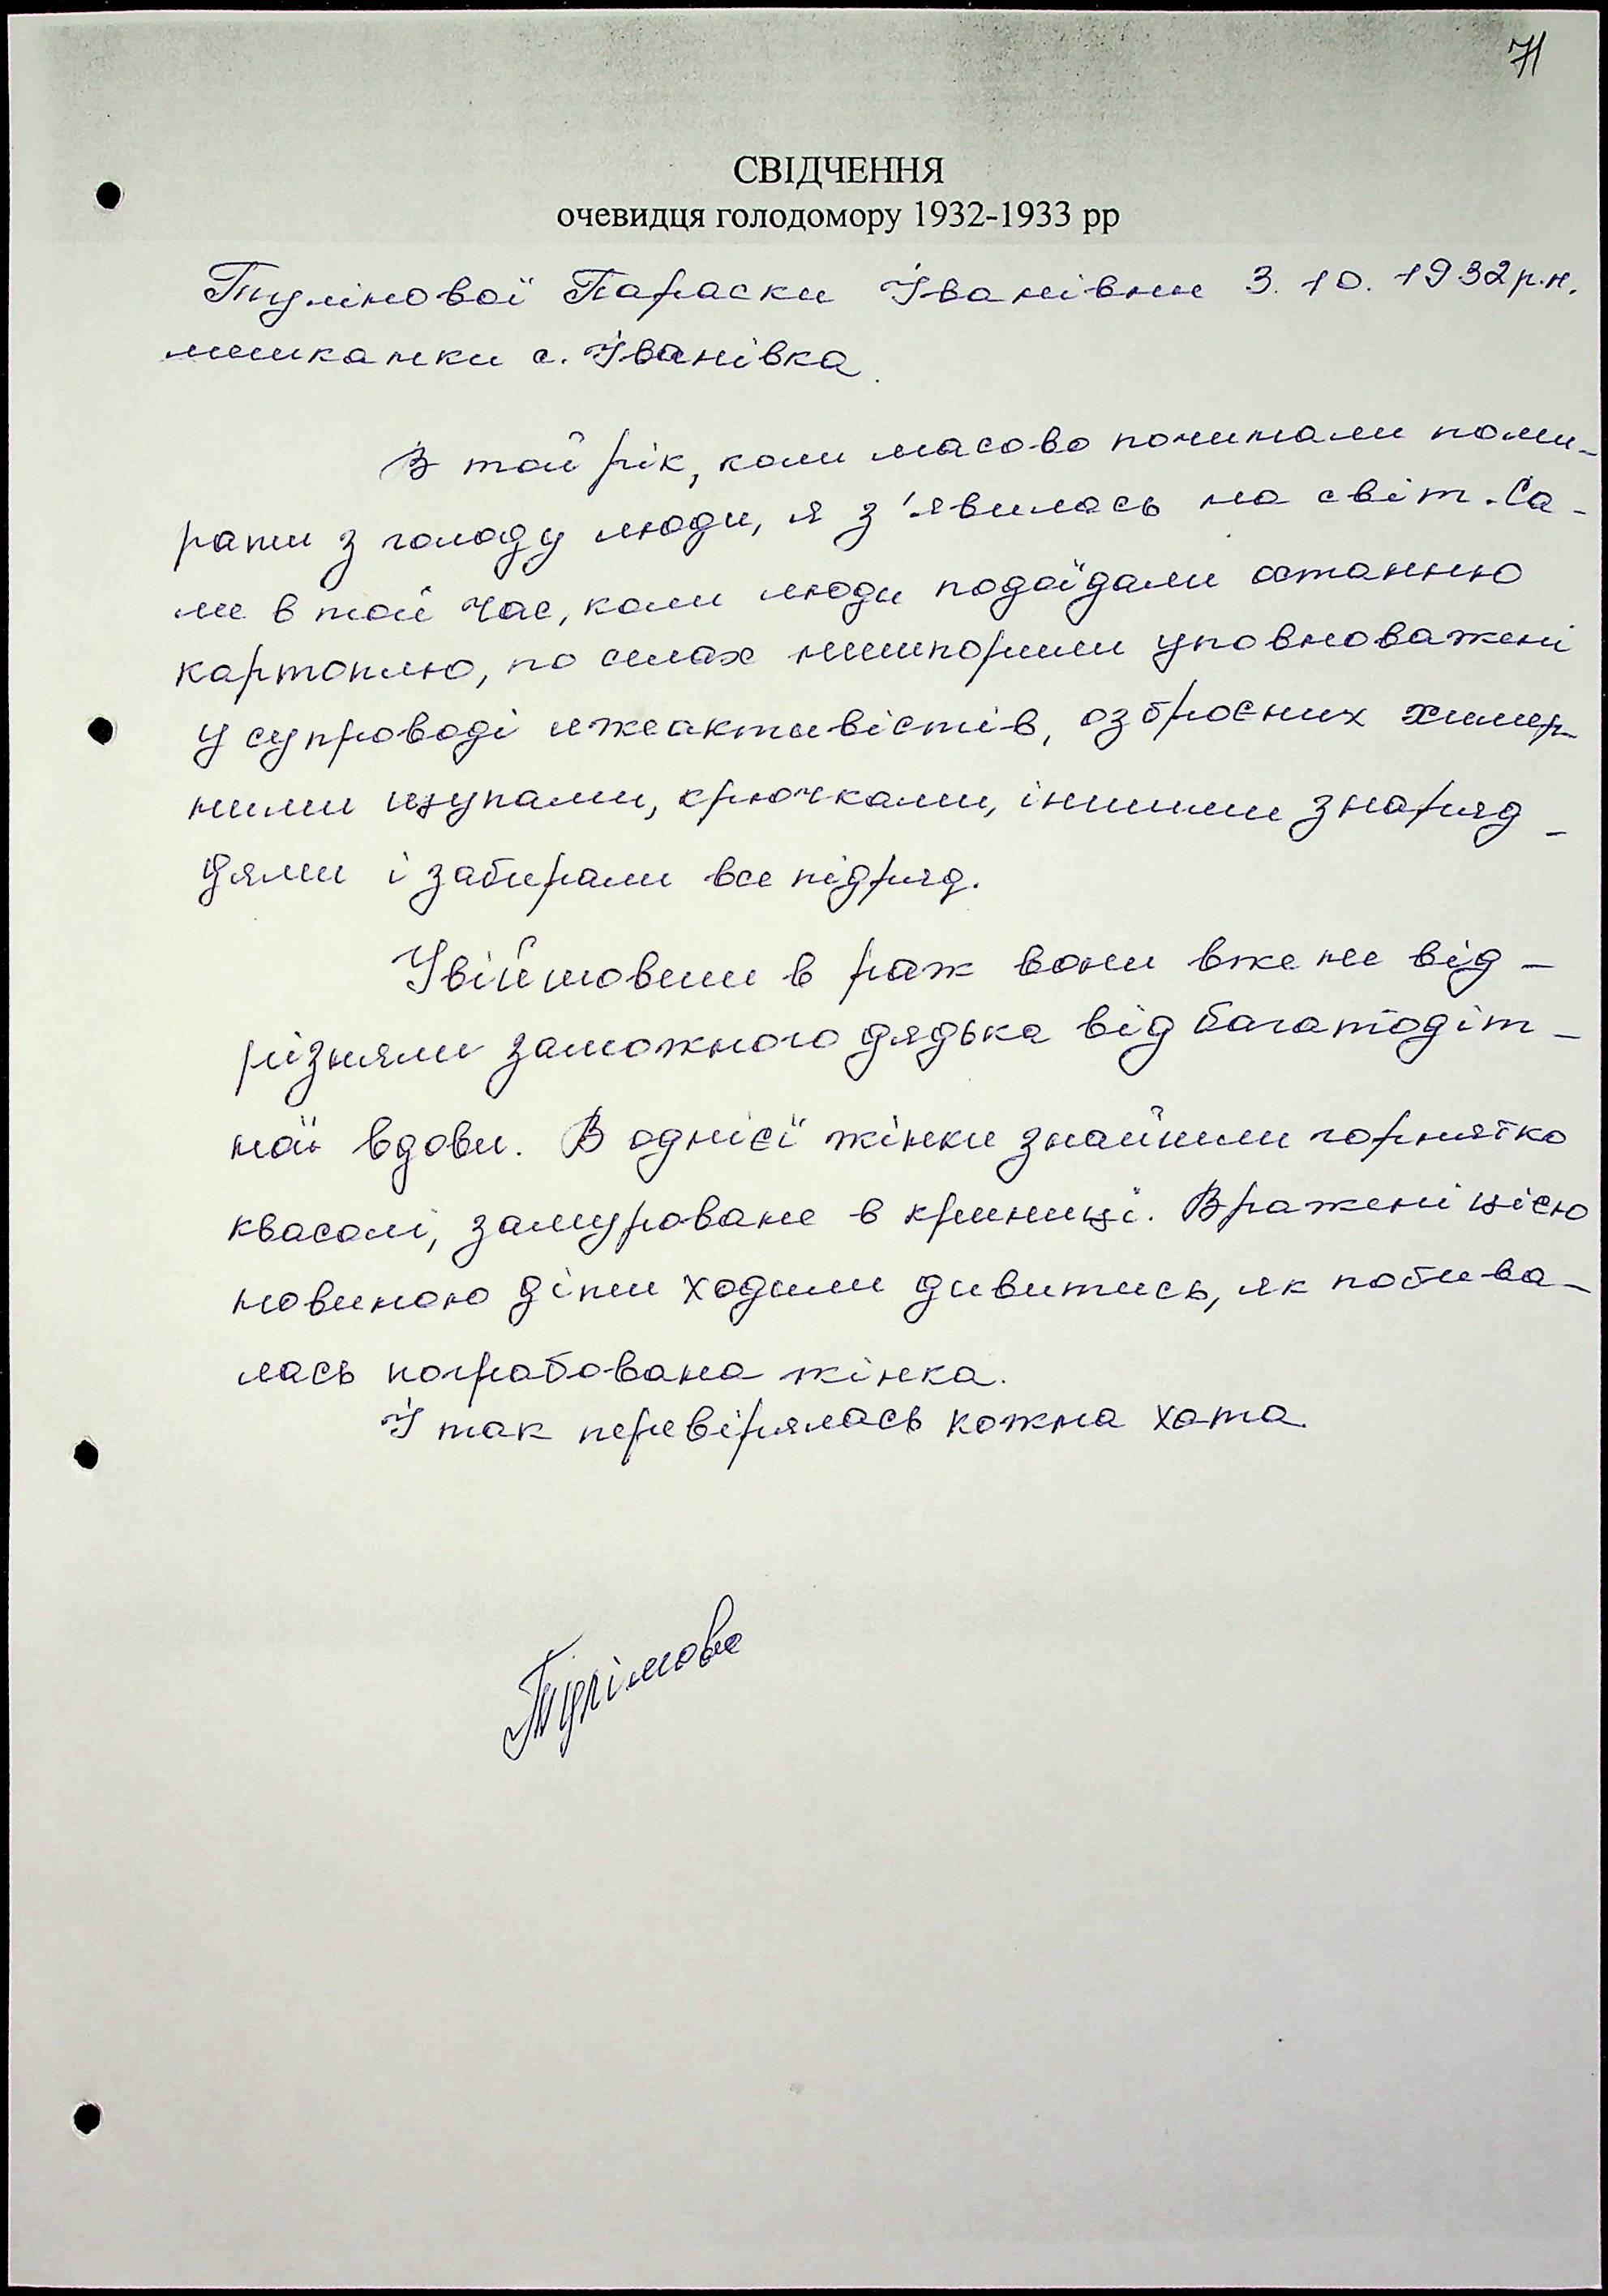 71
СВІДЧЕННЯ
очевидця голодомору 1932-1933 рр
Тулінової Параски Іванівни 3. 10. 1932р.н.
мешканки с. Іванівка.
В той рік, коли масово починали поми-
рати з голоду люди, я з'явилась на світ. Са-
ме в той час, коли люди подоїдали останню
картоплю, по селах нишпорили уповноважені
у супроводі лжеактивістів, озброєних химер-
ними щупами, крючками, іншими знаряд-
дями і забирали все підряд.
Увійшовши в раж вони вже не від-
різняли заможного дядька від багатодіт-
ної вдови. В однієї жінки знайшли горнятко
квасолі, замуроване в криниці. Вражені цією
новиною діти ходили дивитись, як побива-
лась пограбована жінка.
І так перевірялась кожна хата.
Тулінова